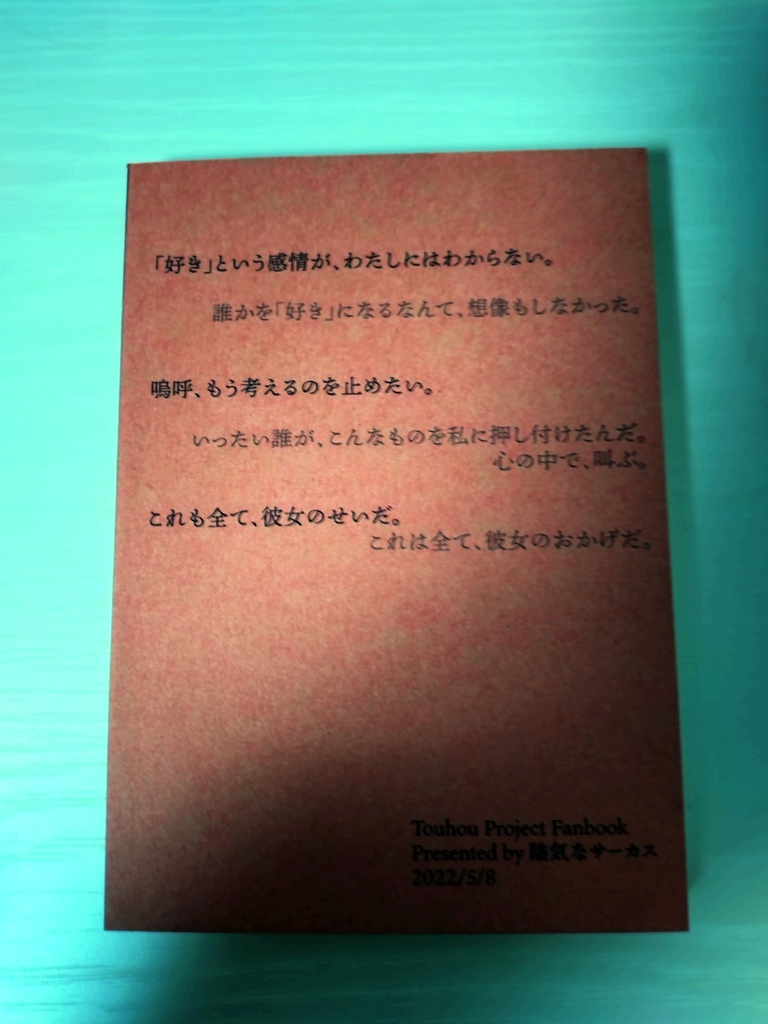 「好き」という感情が、わたしにはわからない。
誰かを「好き」になるなんて、想像もしなかった。
嗚呼、もう考えるのを止めたい。
いったい誰が、こんなものを私に押し付けたんだ。
心の中で、叫ぶ。
これも全て、彼女のせいだ。
これは全て、彼女のおかげだ。
Touhou Project Fanbook
Presented by 陰気なサーカス
2022/5/8